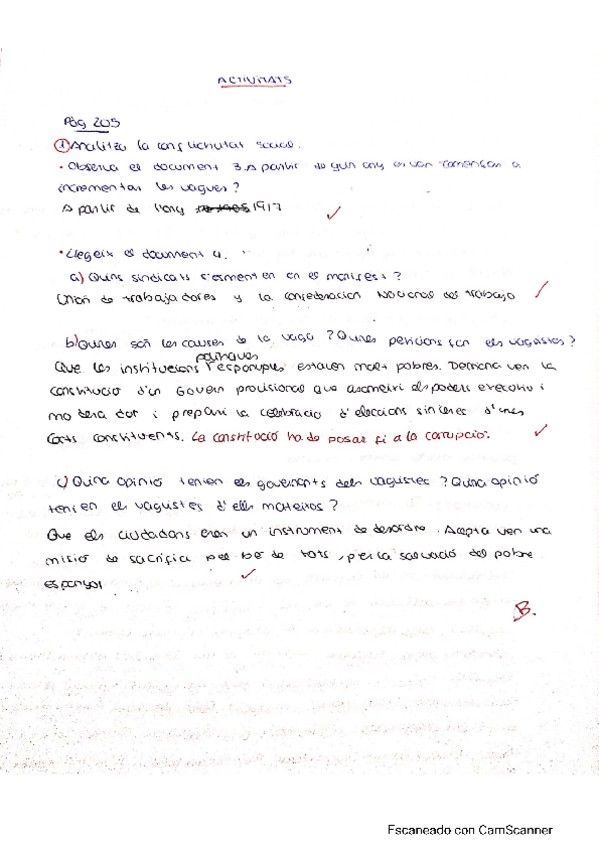 ACTIVITATS
Pàg 205
① Analitza la conflictivitat social.
• Observa el document 3. A partir de quin any es van començar a
incrementar les vagues?
A partir de l'any 1917
• Llegeix el document 4.
a) Quins sindicats s'esmenten en el manifest?
Unión de trabajadores y la confederación Nacional del trabajo
b) Quines són les causes de la vaga? Quines peticions fan els vaguistes?
polítiques
Que les institucions espanyoles estaven molt pobres. Demana ven la
constitució d'un Govern provisional que assumeixi els poders executiu i
moderador i prepari la celebració d'eleccions sinceres d'unes
Corts constituents. La constitució ha de posar fi a la corrupció.
c) Quina opinió tenien els governants dels vaguistes? Quina opinió
tenien els vaguistes d'ells mateixos?
Que els ciudadans eren un instrument de desordre. Accepta ven una
misió de sacrifici pel bé de tots, per la salvació del poble
espanyol
B.
Escaneado con CamScanner